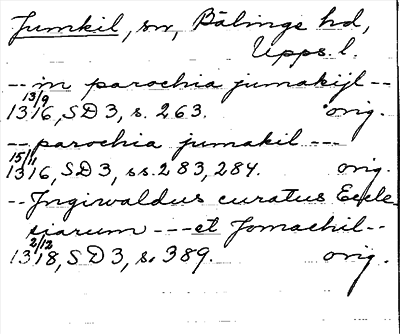 Jumkil, sn, Bälinge hd,
Upps. l.
-- in parochia jumakijl --
13/9 1316, SD 3, s. 263. orig.
-- parochia jumakil ---
15/11 1316, SD 3, ss. 283, 284. orig.
-- Jngivaldus curatus Eccle-
siarum --- et Jomachil --
2/12 1318, SD 3, s. 389. orig.